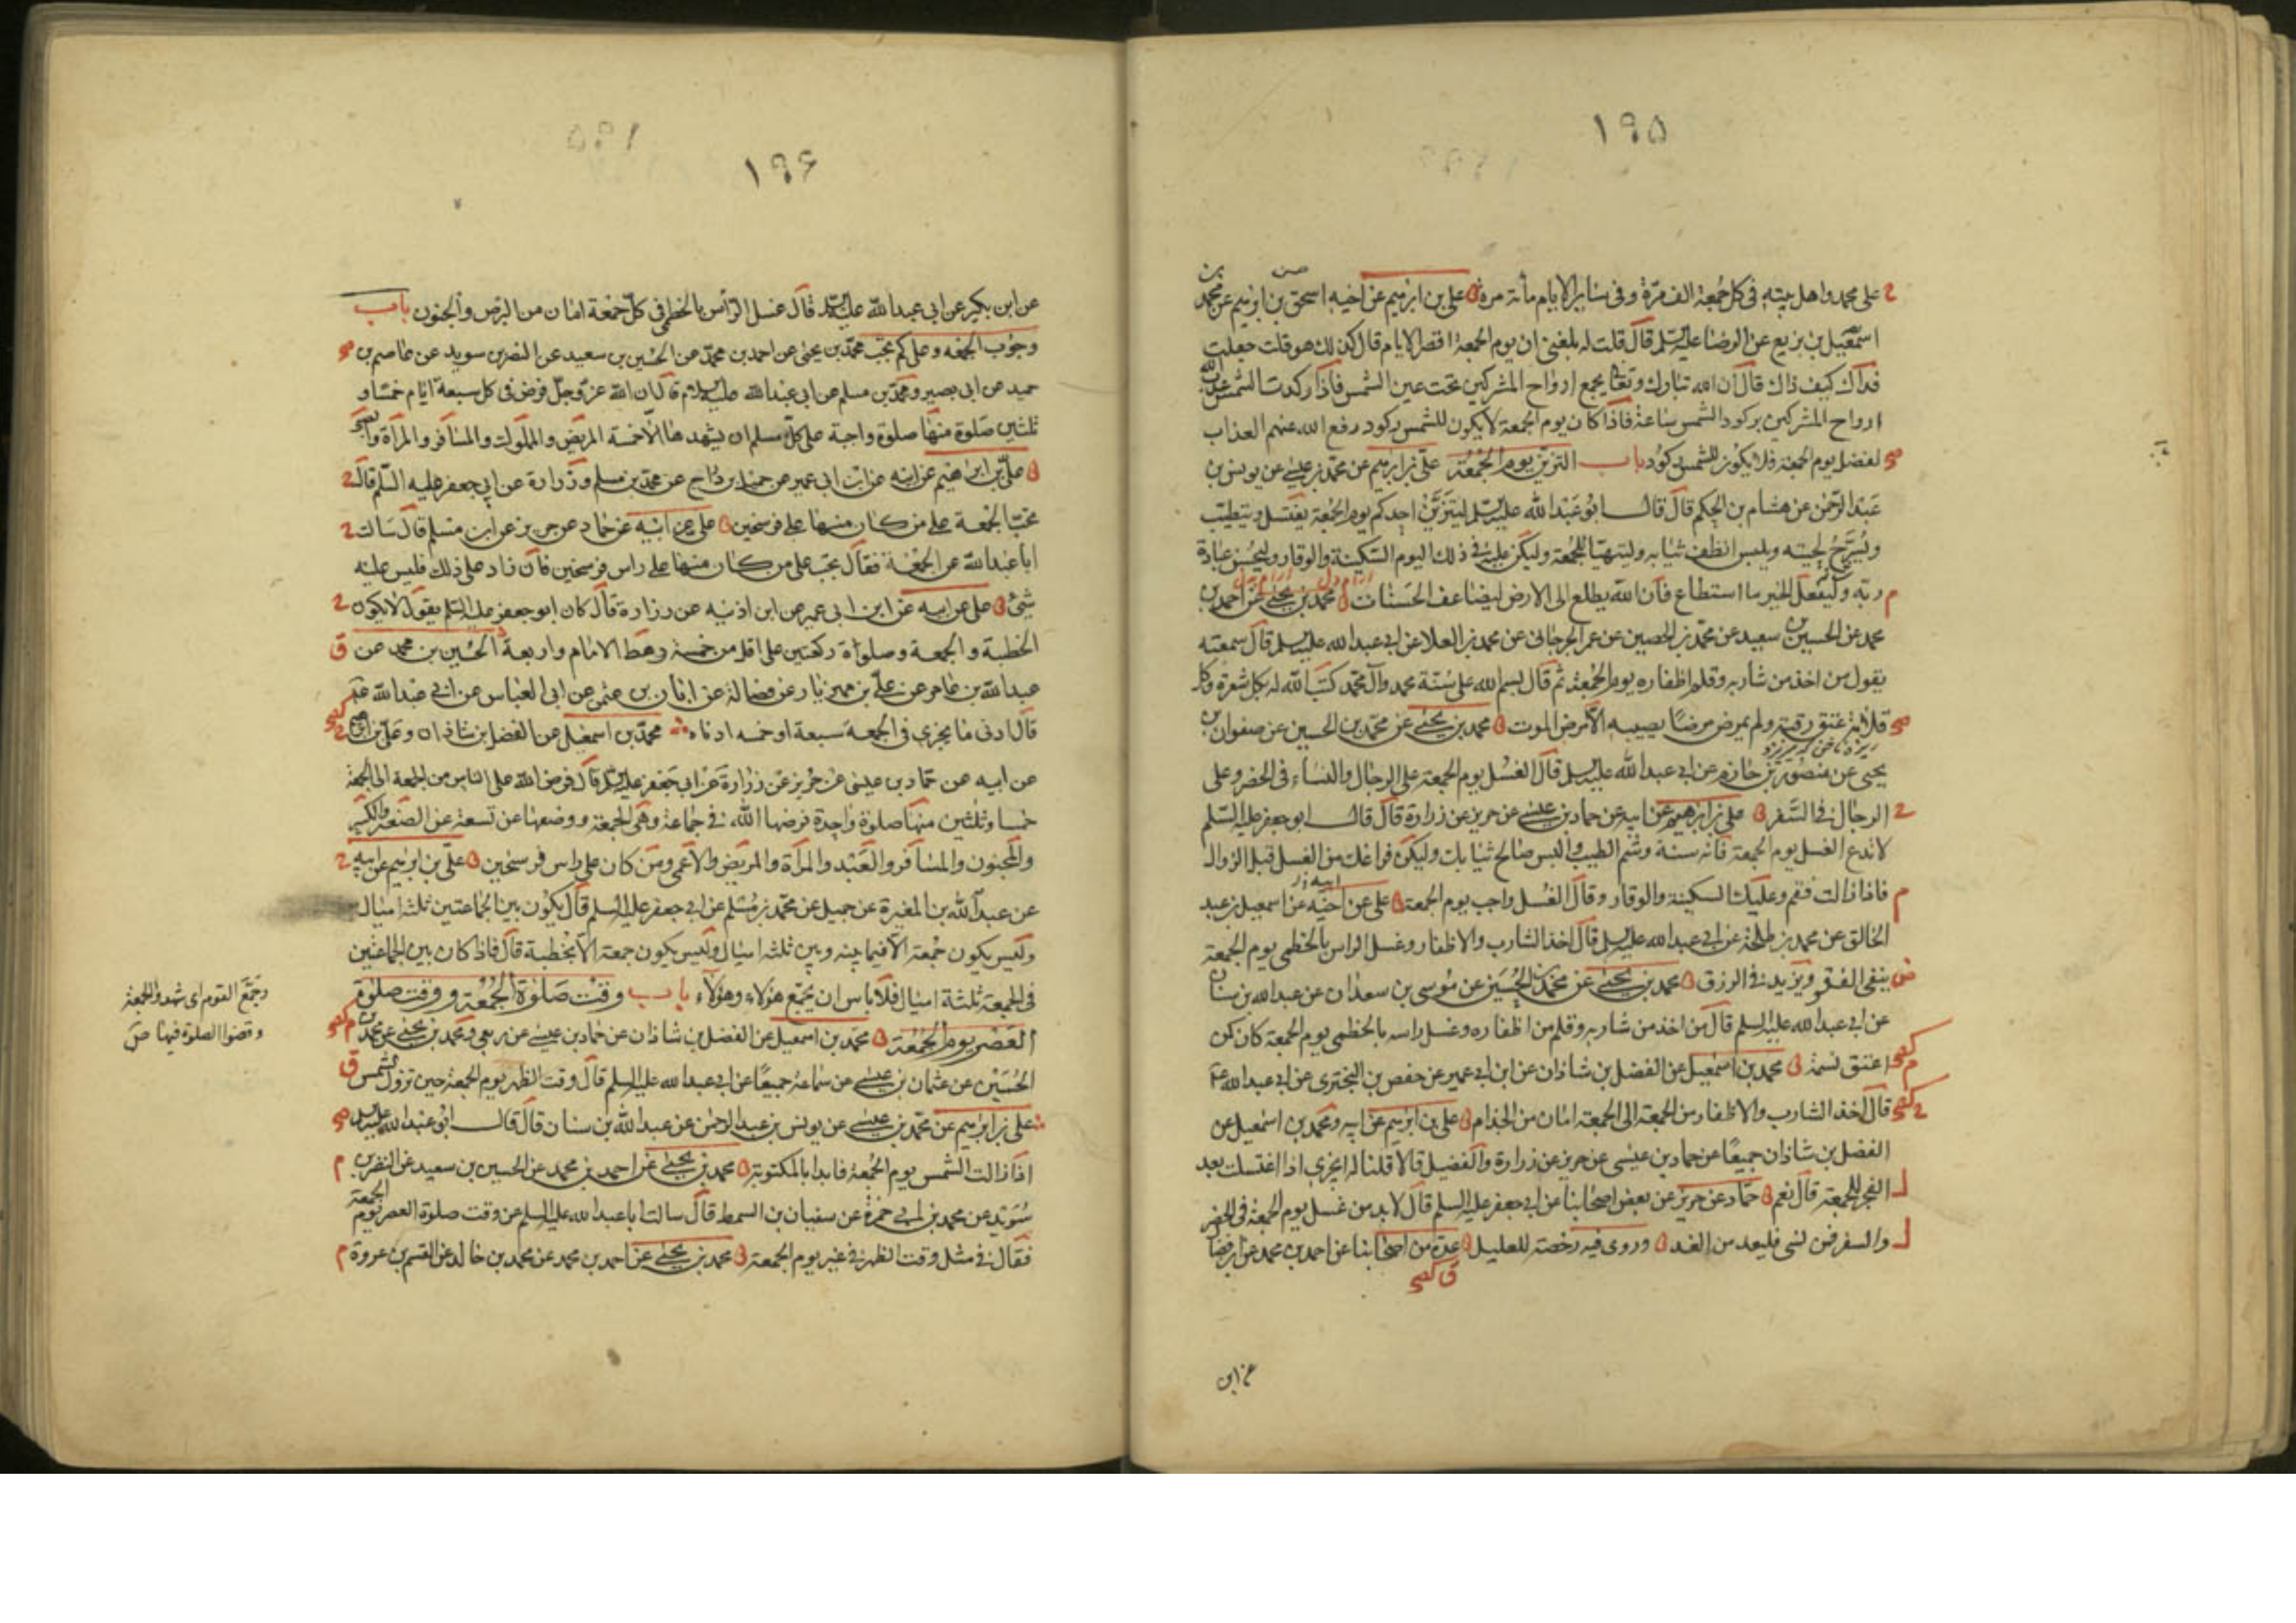 ١٩٥
على محمد واهل بيته فى كل جمعة الف مرة وفى ساير الايام مأة مرة على بن ابرهيم عن اخيه اسحق بن ابرهيم عن محمد بن
اسمعيل بن بزيع عن الرضا عليه السلم قال قلت له بلغنى ان يوم الجمعة اقصر الايام قال كذلك هو قلت جعلت
فداك كيف ذاك قال ان الله تبارك وتعالى يجمع ارواح المشركين تحت عين الشمس فاذا ركدت الشمس عذب الله
ارواح المشركين بركود الشمس ساعة فاذا كان يوم الجمعة لا يكون للشمس ركود رفع الله عنهم العذاب
لفضل يوم الجمعة فلا يكون للشمس ركود باب التزين يوم الجمعة على بن ابرهيم عن محمد بن عيسى عن يونس بن
عبد الرحمن عن هشام بن الحكم قال قال ابو عبد الله عليه السلم ليتزين احدكم يوم الجمعة يغتسل ويتطيب
ويسرح لحيته ويلبس انظف ثيابه وليتهيا للجمعة وليكن عليه فى ذلك اليوم السكينة والوقار وليحسن عبادة
ربه وليفعل الخير ما استطاع فان الله يطلع الى الارض ليضاعف الحسنات محمد بن يحيى عن احمد بن
محمد عن الحسين بن سعيد عن محمد بن الحصين عن عمر الجرجانى عن محمد بن العلا عن ابى عبد الله عليه السلم قال سمعته
يقول من اخذ من شاربه وقلم اظفاره يوم الجمعة ثم قال بسم الله على سنة محمد وآل محمد كتب الله له بكل شعرة وكل
قلامة عتق رقبة ولم يمرض مرضا يصيبه الا مرض الموت محمد بن يحيى عن محمد بن الحسين عن صفوان بن
يحيى عن منصور بن حازم عن ابى عبد الله عليه السلم قال الغسل يوم الجمعة على الرجال والنساء فى الحضر وعلى
الرجال فى السفر على بن ابرهيم عن ابيه عن حماد بن عيسى عن حريز عن زرارة قال قال ابو جعفر عليه السلم
لا تدع الغسل يوم الجمعة فانه سنة وشم الطيب والبس صالح ثيابك وليكن فراغك من الغسل قبل الزوال
فاذا زالت فقم وعليك السكينة والوقار وقال الغسل واجب يوم الجمعة على عن اخيه عن اسمعيل بن عبد
الخالق عن محمد بن طلحة عن ابى عبد الله عليه السلم قال اخذ الشارب والاظفار وغسل الراس بالخطمى يوم الجمعة
ينفى الفقر ويزيد فى الرزق محمد بن يحيى عن محمد بن الحسين عن موسى بن سعدان عن عبد الله بن سنان
عن ابى عبد الله عليه السلم قال من اخذ من شاربه وقلم من اظفاره وغسل راسه بالخطمى يوم الجمعة كان كمن
اعتق نسمة محمد بن اسمعيل عن الفضل بن شاذان عن ابن ابى عمير عن حفص بن البخترى عن ابى عبد الله ع
قال اخذ الشارب والاظفار من الجمعة الى الجمعة امان من الجذام على بن ابرهيم عن ابيه ومحمد بن اسمعيل عن
الفضل بن شاذان جميعا عن حماد بن عيسى عن حريز عن زرارة والفضيل قالا قلنا له ايجزى اذا اغتسلت بعد
الفجر للجمعة قال نعم حماد عن حريز عن بعض اصحابنا عن ابى جعفر عليه السلم قال لا بد من غسل يوم الجمعة فى الحضر
والسفر فمن نسى فليعد من الغد وروى فيه رخصة للعليل عدة من اصحابنا عن احمد بن محمد عن ابن فضال
عن ابن
١٩۶
عن ابن بكير عن ابى عبد الله عليه السلم قال غسل الرأس بالخطمى فى كل جمعة امان من البرص والجنون باب
وجوب الجمعة وعلى كم تجب محمد بن يحيى عن احمد بن محمد عن الحسين بن سعيد عن النضر بن سويد عن عاصم بن
حميد عن ابى بصير ومحمد بن مسلم عن ابى عبد الله عليه السلم قال ان الله عز وجل فرض فى كل سبعة ايام خمسا و
ثلثين صلوة منها صلوة واجبة على كل مسلم ان يشهدها الا خمسة المريض والمملوك والمسافر والمرأة والصبى
على بن ابراهيم عن ابيه عن ابن ابى عمير عن جميل بن دراج عن محمد بن مسلم وزرارة عن ابى جعفر عليه السلم قال
تجب الجمعة على من كان منها على فرسخين على عن ابيه عن حماد عن حريز عن ابن مسلم قال سالت
ابا عبد الله عن الجمعة فقال تجب على من كان منها على راس فرسخين فان زاد على ذلك فليس عليه
شئ على عن ابيه عن ابن ابى عمير عن ابن اذينه عن زرارة قال كان ابو جعفر عليه السلم يقول لا يكون
الخطبة و الجمعة وصلوة ركعتين على اقل من خمسة رهط الامام واربعة الحسين بن محمد عن
عبد الله بن عامر عن على بن مهزيار عن فضالة عن ابان بن عثمن عن ابى العباس عن ابى عبد الله ع
قال ادنى ما يجزى فى الجمعة سبعة او خمسه ادناه محمد بن اسمعيل عن الفضل بن شاذان وعلى بن ابرهيم
عن ابيه عن حماد بن عيسى عن حريز عن زرارة عن ابى جعفر عليه السلم قال فرض الله على الناس من الجمعة الى الجمعة
خمسا وثلثين منها صلوة واحدة فرضها الله فى جماعة وهى الجمعة ووضعها عن تسعة عن الصغير والكبير
والمجنون والمسافر والعبد والمرأة والمريض والاعمى ومن كان على راس فرسخين على بن ابرهيم عن ابيه
عن عبد الله بن المغيرة عن جميل عن محمد بن مسلم عن ابى جعفر عليه السلم قال يكون بين الجماعتين ثلثة اميال
وليس يكون جمعة الا فيما بينه وبين ثلثه اميال وليس يكون جمعة الا بخطبة قال فاذا كان بين الجماعتين
فى الجمعة ثلثة اميال فلا باس ان يجمع هؤلاء وهؤلاء باب وقت صلوة الجمعة ووقت صلوة
العصر يوم الجمعة محمد بن اسمعيل عن الفضل بن شاذان عن حماد بن عيسى عن ربعى ومحمد بن يحيى عن محمد بن
الحسين عن عثمان بن عيسى عن سماعة جميعا عن ابى عبد الله عليه السلم قال وقت الظهر يوم الجمعة حين تزول الشمس
على بن ابرهيم عن محمد بن عيسى عن يونس بن عبد الرحمن عن عبد الله بن سنان قال قال ابو عبد الله عليه السلم
اذا زالت الشمس يوم الجمعة فابدا بالمكتوبة محمد بن يحيى عن احمد بن محمد عن الحسين بن سعيد عن النضر بن
سويد عن محمد بن ابى حمزة عن سفيان بن السمط قال سالت ابا عبد الله عليه السلم عن وقت صلوة العصر يوم الجمعة
فقال فى مثل وقت الظهر فى غير يوم الجمعة محمد بن يحيى عن احمد بن محمد عن محمد بن خالد عن القسم بن عروة
وجمع القوم اى شهدوا الجمعة
وقضوا الصلوة فيها ص